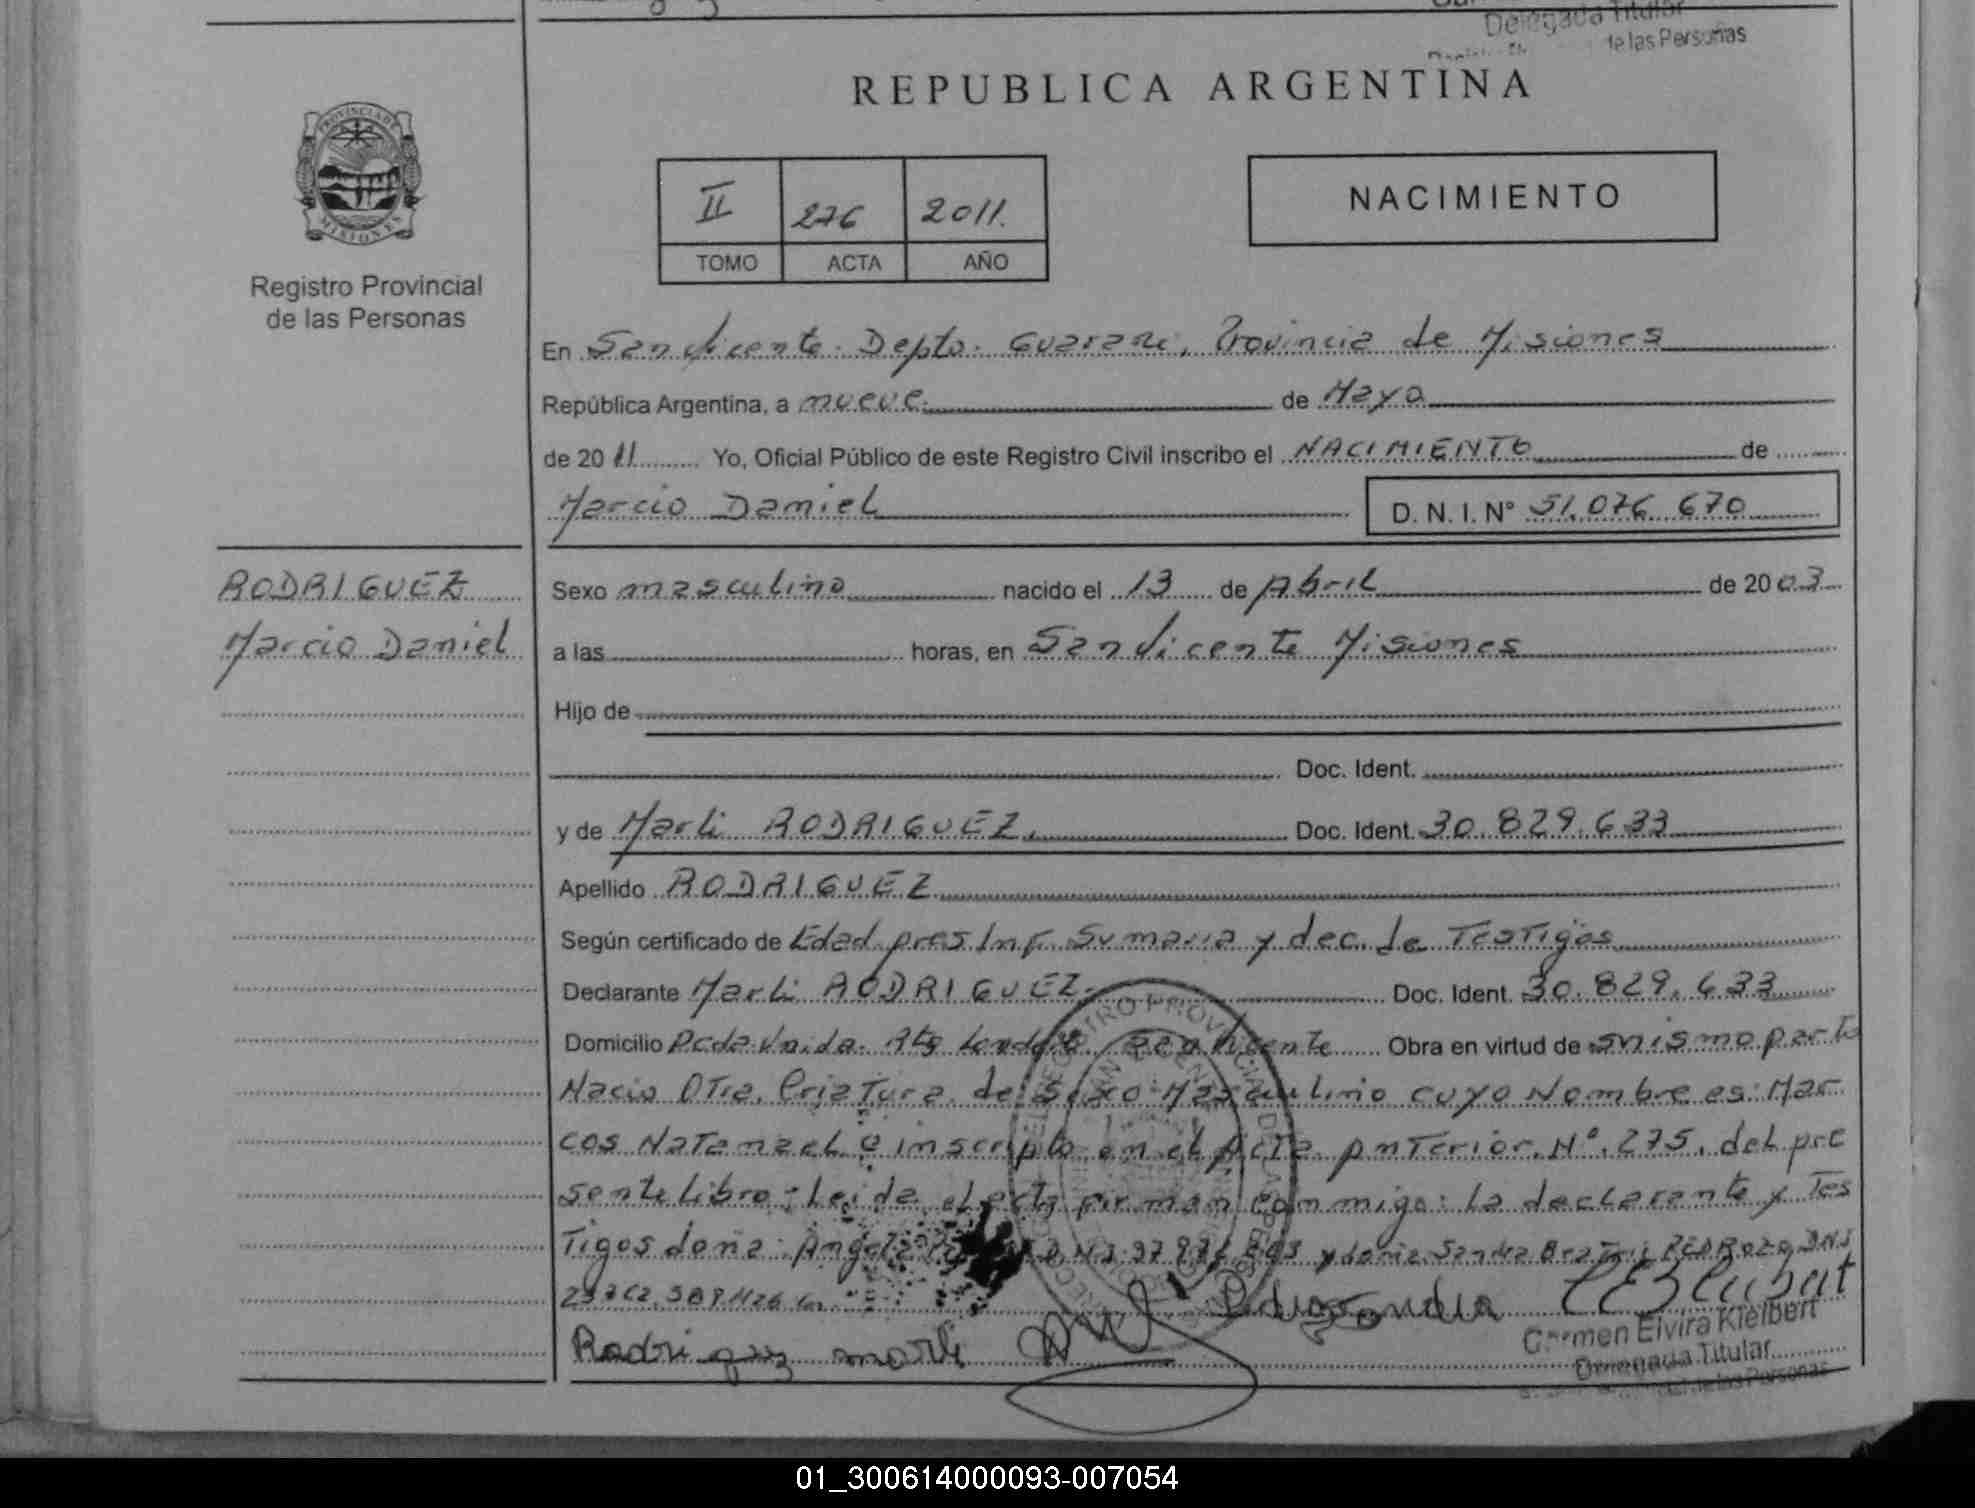 Delegada Titular
de las Personas
REPUBLICA ARGENTINA
PROVINCIA DE
MISIONES
Registro Provincial
de las Personas
II 276 2011.
TOMO ACTA AÑO
NACIMIENTO
En San Vicente. Depto. Guarani, Provincia de Misiones
República Argentina, a nueve. de Mayo
de 2011 Yo, Oficial Público de este Registro Civil inscribo el NACIMIENTO de
Marcio Daniel D. N. I. N° 51.076.670
RODRIGUEZ
Marcio Daniel
Sexo masculino nacido el 13 de Abril de 2003
a las horas, en San Vicente Misiones
Hijo de
Doc. Ident.
y de Marli RODRIGUEZ. Doc. Ident. 30.829.633
Apellido RODRIGUEZ
Según certificado de Edad pres. Inf. Sumaria y dec. de Testigos
Declarante Marli RODRIGUEZ. Doc. Ident. 30.829.633
Domicilio Pcda. Unida. Vicente Obra en virtud de mismo parto
Nacio Otra Criatura de Sexo Masculino cuyo Nombre es: Mar
cos Natanael e inscripto en el Acta anterior. N°. 275. del pre
sente Libro. Leida el acta firman conmigo: La declarante y Tes
Tigos doña: Angela y doña Sandra Beatriz PEDROZO DNI
Rodriguez marli
Carmen Elvira Kleibert
Delegada Titular
de las Personas
01_300614000093-007054